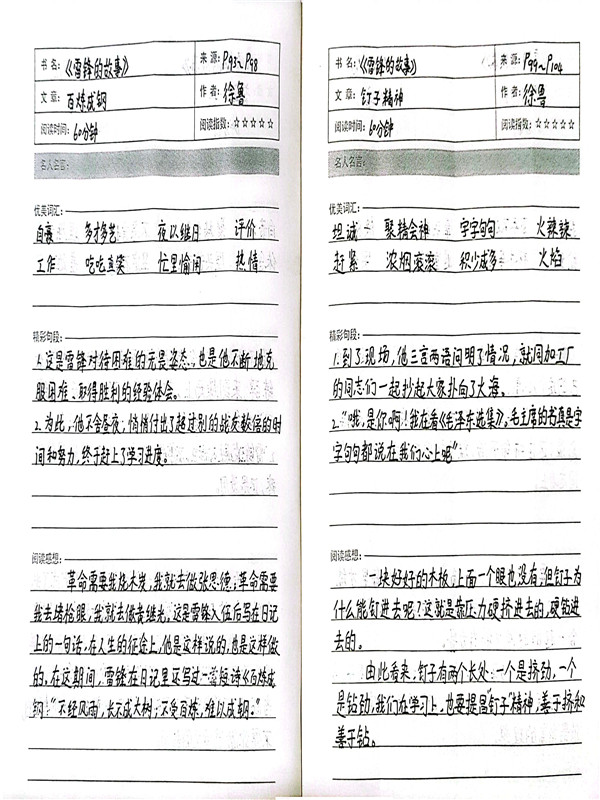 书名：《雷锋的故事》
来源：P93~P98
文章：百炼成钢
作者：徐鲁
阅读时间：60分钟
阅读指数：☆☆☆☆☆
名人名言：
优美词汇：
自豪 多才多艺 夜以继日 评价
工作 吃吃直笑 忙里偷闲 热情
精彩句段：
1.这是雷锋对待困难的无畏姿态,也是他不断地克
服困难、取得胜利的经验体会。
2.为此,他不舍昼夜,悄悄付出了超过别的战友数倍的时
间和努力,终于赶上了学习进度。
阅读感想：
革命需要我烧木炭,我就去做张思德;革命需要
我去堵枪眼,我就去做黄继光。这是雷锋入伍后写在日记
上的一句话。在人生的征途上,他是这样说的,也是这样做
的。在这期间,雷锋在日记里还写过一首短诗《百炼成
钢》"不经风雨,长不成大树;不受百炼,难以成钢。"
书名：《雷锋的故事》
来源：P99~P104
文章：钉子精神
作者：徐鲁
阅读时间：60分钟
阅读指数：☆☆☆☆☆
名人名言：
优美词汇：
坦诚 聚精会神 字字句句 火辣辣
赶紧 浓烟滚滚 积少成多 火焰
精彩句段：
1.到了现场,他三言两语问明了情况,就同加工厂
的同志们一起抄起大家扑向了大海。
2."哦,是你啊!我在看《毛泽东选集》。毛主席的书真是字
字句句都说在我们心上呢"
阅读感想：
一块好好的木板,上面一个眼也没有,但钉子为
什么能钉进去呢?这就是靠压力硬挤进去的,硬钻进
去的。
由此看来,钉子有两个长处:一个是挤劲,一个
是钻劲,我们在学习上,也要提倡"钉子"精神,善于挤和
善于钻。